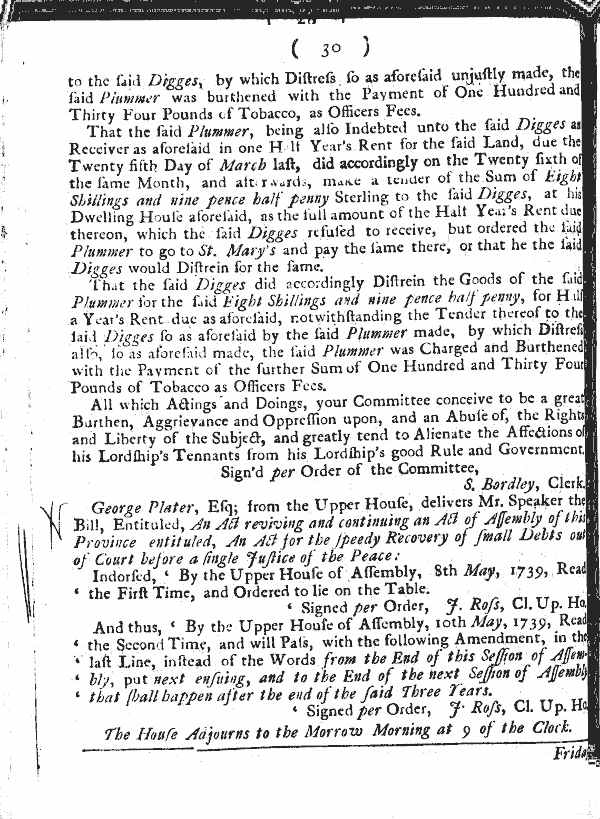 ( 30 )
to the ſaid Digges, by which Diſtreſs ſo as aforeſaid unjuſtly made, the
ſaid Plummer was burthened with the Payment of One Hundred and
Thirty Four Pounds of Tobacco, as Officers Fees.
That the ſaid Plummer, being alſo Indebted unto the ſaid Digges as
Receiver as aforeſaid in one Half Year's Rent for the ſaid Land, due the
Twenty fifth Day of March laſt, did accordingly on the Twenty ſixth of
the ſame Month, and afterwards, make a tender of the Sum of Eight
Shillings and nine pence half penny Sterling to the ſaid Digges, at his
Dwelling Houſe aforeſaid, as the full amount of the Half Year's Rent due
thereon, which the ſaid Digges refuſed to receive, but ordered the ſaid
Plummer to go to St. Mary's and pay the ſame there, or that he the ſaid
Digges would Diſtrein for the ſame.
That the ſaid Digges did accordingly Diſtrein the Goods of the ſaid
Plummer for the ſaid Eight Shillings and nine pence half penny, for Half
a Year's Rent due as aforeſaid, notwithſtanding the Tender thereof to the
ſaid Digges ſo as aforeſaid by the ſaid Plummer made, by which Diſtreſs
alſo, ſo as aforeſaid made, the ſaid Plummer was Charged and Burthened
with the Payment of the further Sum of One Hundred and Thirty Four
Pounds of Tobacco as Officers Fees.
All which Actings and Doings, your Committee conceive to be a great
Burthen, Aggrievance and Oppreſſion upon, and an Abuſe of, the Rights
and Liberty of the Subject, and greatly tend to Alienate the Affections of
his Lordſhip's Tennants from his Lordſhip's good Rule and Government.
Sign'd per Order of the Committee,
S. Bordley, Clerk.
George Plater, Eſq; from the Upper Houſe, delivers Mr. Speaker the
Bill, Entituled, An Act reviving and continuing an Act of Aſſembly of this
Province entituled, An Act for the ſpeedy Recovery of ſmall Debts out
of Court before a ſingle Juſtice of the Peace:
Indorſed, ‘ By the Upper Houſe of Aſſembly, 8th May, 1739, Read
‘ the Firſt Time, and Ordered to lie on the Table.
‘ Signed per Order, J. Roſs, Cl. Up. Ho.
And thus, ‘ By the Upper Houſe of Aſſembly, 10th May, 1739, Read
‘ the Second Time, and will Paſs, with the following Amendment, in the
‘ laſt Line, inſtead of the Words from the End of this Seſſion of Aſſem-
‘ bly, put next enſuing, and to the End of the next Seſſion of Aſſembly
‘ that ſhall happen after the end of the ſaid Three Years.
‘ Signed per Order, J. Roſs, Cl. Up. Ho.
The Houſe Adjourns to the Morrow Morning at 9 of the Clock.
Frida